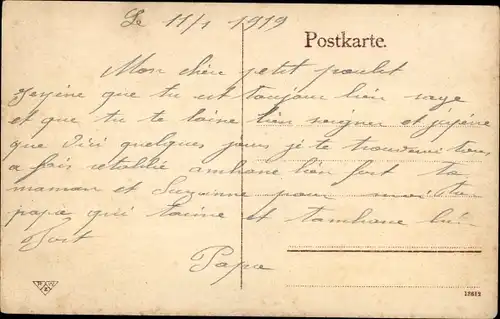 Le 11/1 1919
Postkarte.
Mon chéri petit poulet
J'espère que tu est toujour bien sage
et que tu te laisse bien soigner et j'espère
que d'ici quelques jours je te trouverai tous
a fais rétablie ambrasse bien fort ta
maman et Suzanne pour moi ton
papa qui t'aime et t'ambrase bien
Fort
Papa
12612